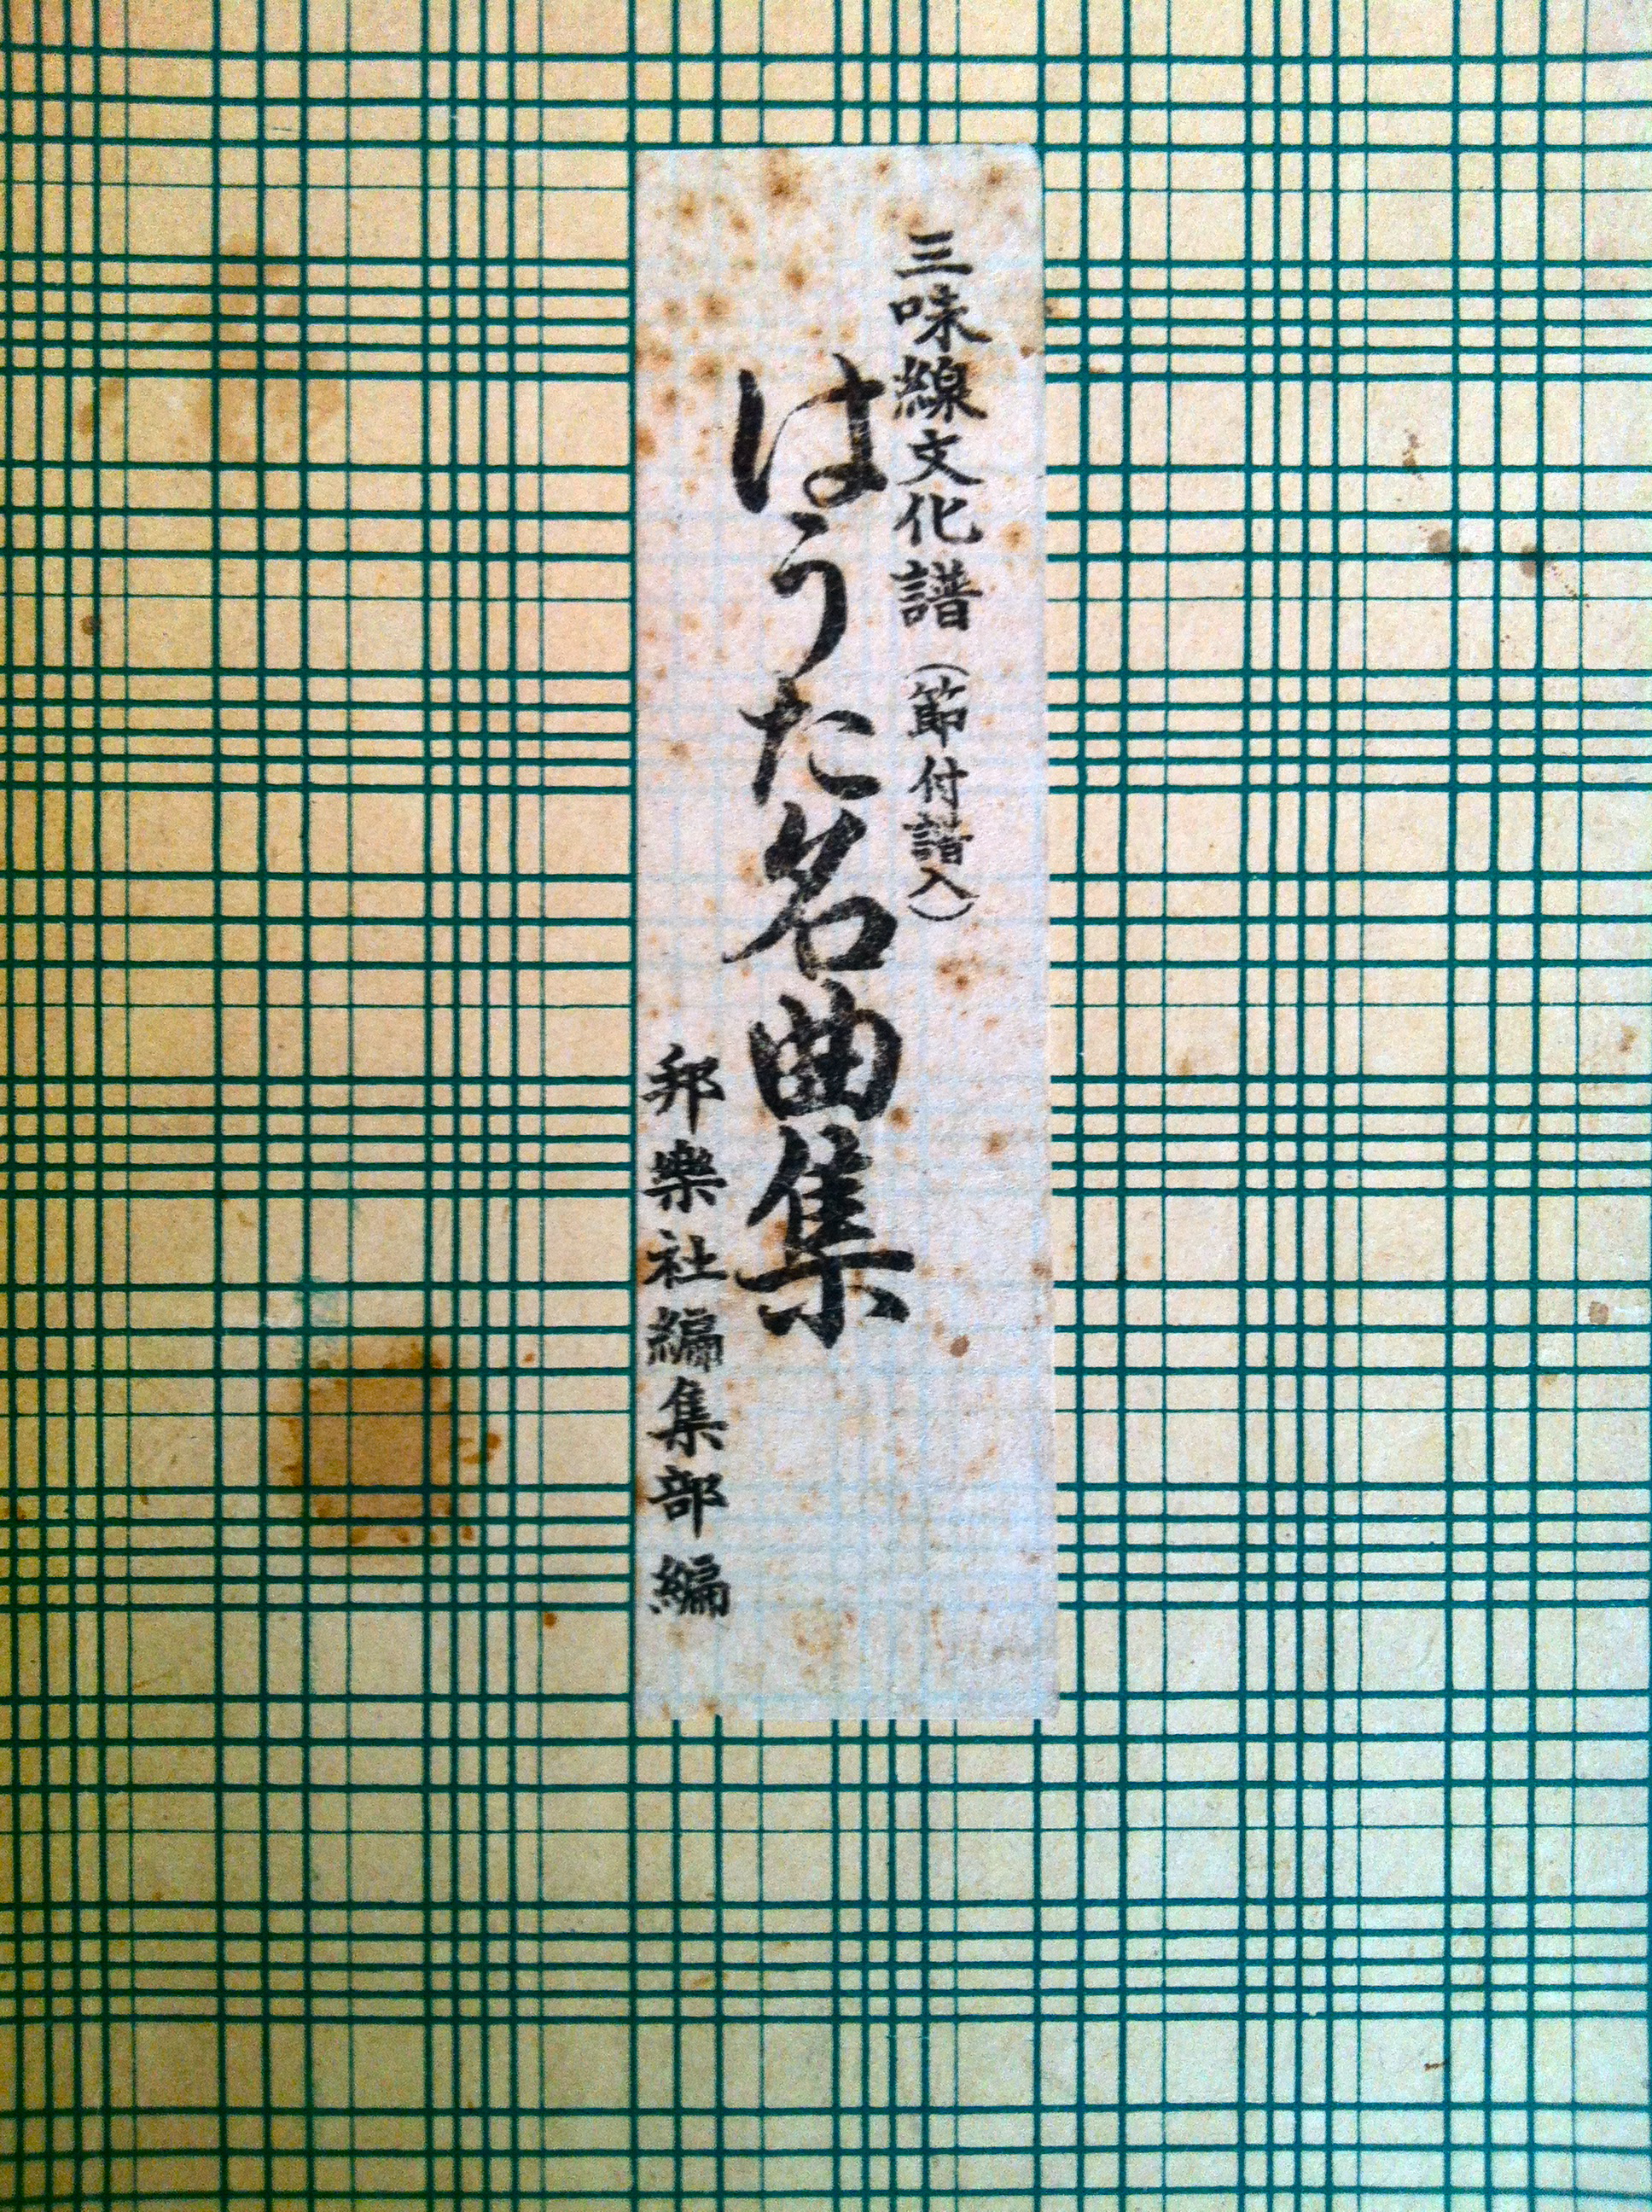 三味線文化譜（節付譜入）
はうた名曲集
邦樂社編集部編